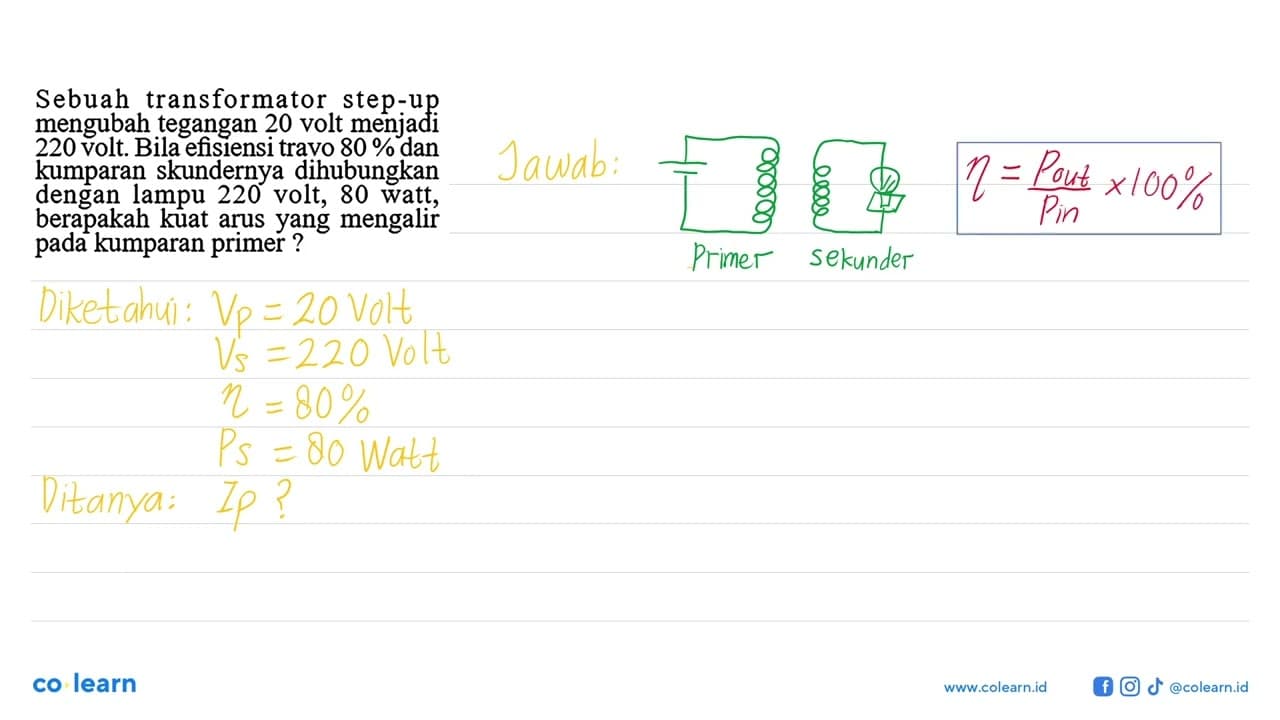 Sebuah transformator step-up
mengubah tegangan 20 volt menjadi
220 volt. Bila efisiensi travo 80 % dan
kumparan skundernya dihubungkan
dengan lampu 220 volt, 80 watt,
berapakah kuat arus yang mengalir
pada kumparan primer ?
Jawab:
Primer sekunder
η = Pout/Pin × 100%
Diketahui: Vp = 20 Volt
Vs = 220 Volt
η = 80%
Ps = 80 Watt
Ditanya: Ip ?
co learn
www.colearn.id
@colearn.id